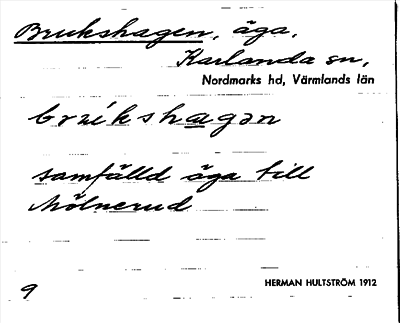 Brukshagen, äga,
Karlanda sn,
Nordmarks hd, Värmlands län
brúkshagən
samfälld äga till
Mölnerud
9
HERMAN HULTSTRÖM 1912